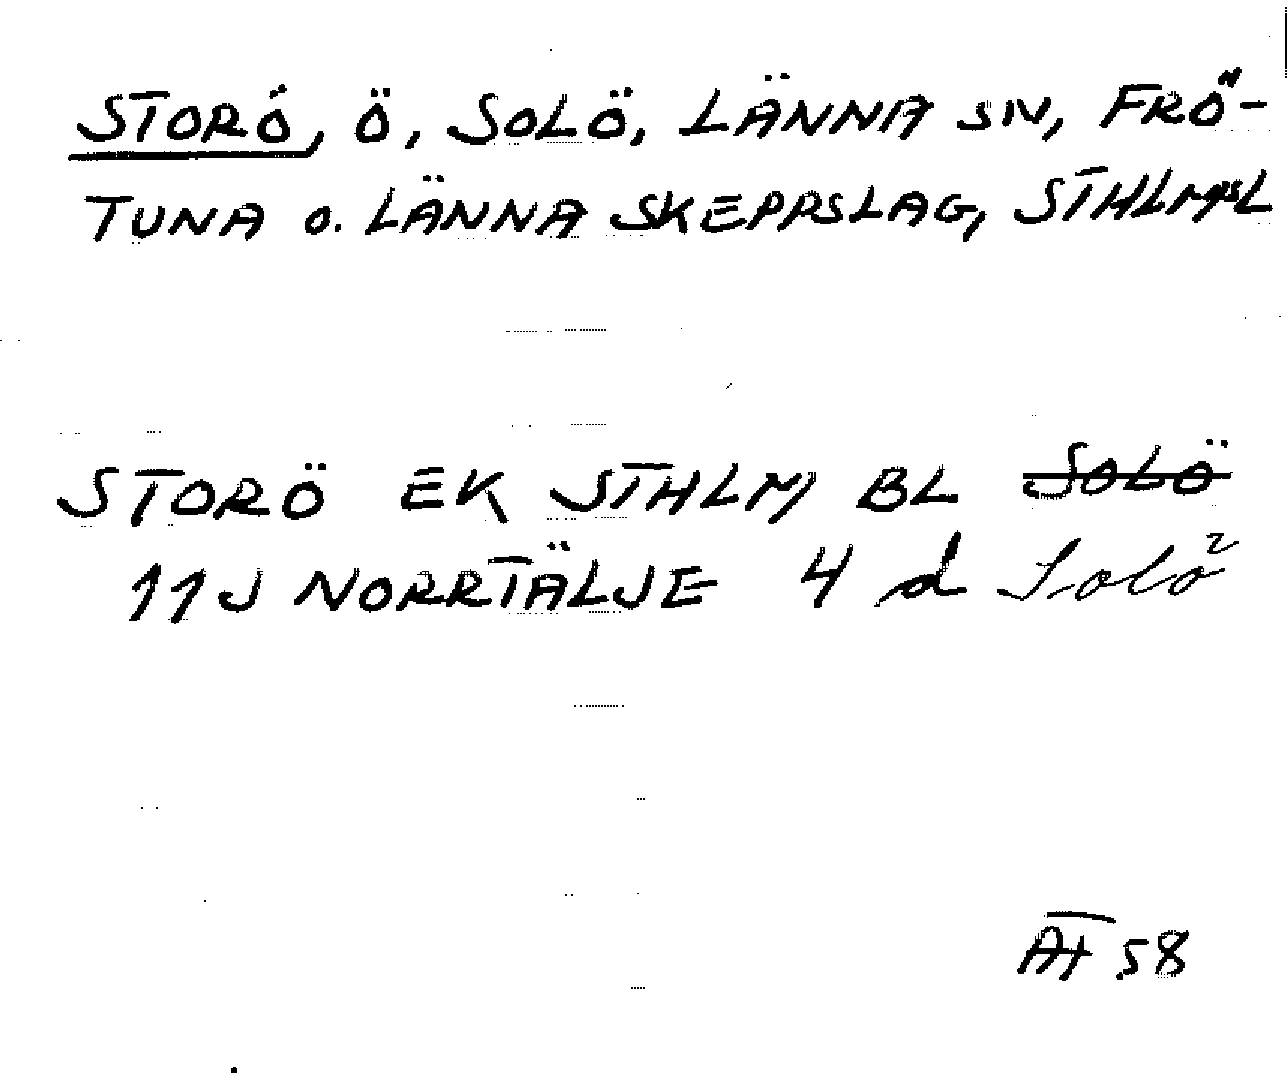 STORÖ, Ö, SOLÖ, LÄNNA SN, FRÖ-
TUNA o. LÄNNA SKEPPSLAG, STHLMSL
STORÖ EK STHLM BL SOLÖ
11J NORRTÄLJE 4 d Solö
AT 58